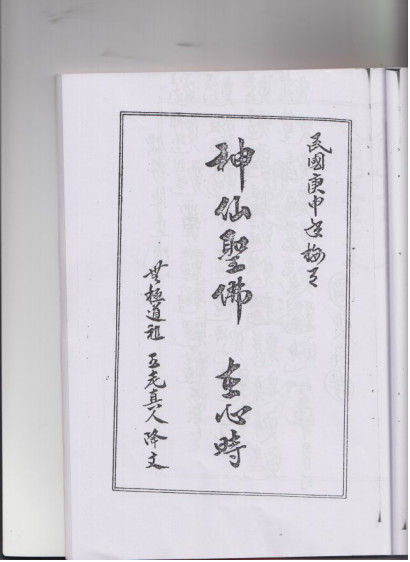 民國庚申年梅月
神仙聖佛 在心時
無極道祖 五老真人降文